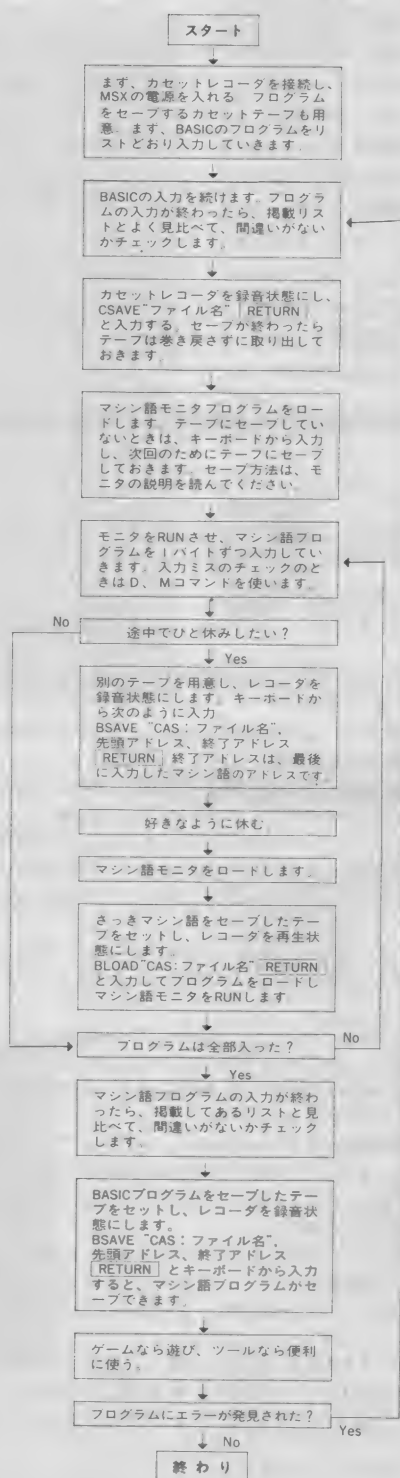 スタート
まず、カセットレコーダを接続し、
MSXの電源を入れる プログラム
をセーブするカセットテープも用
意 まず、BASICのプログラムをリ
ストどおり入力していきます
BASICの入力を続けます。プログラ
ムの入力が終わったら、掲載リス
トとよく見比べて、間違いがない
かチェックします。
カセットレコーダを録音状態にし、
CSAVE"ファイル名" RETURN
と入力する。セーブが終わったら
テープは巻き戻さずに取り出して
おきます。
マシン語モニタプログラムをロー
ドします。テープにセーブしてい
ないときは、キーボードから入力
し、次回のためにテープにセーブ
しておきます。セーブ方法は、モ
ニタの説明を読んでください。
モニタをRUNさせ、マシン語プロ
グラムを1バイトずつ入力してい
きます。入力ミスのチェックのと
きはD、Mコマンドを使います。
No
途中でひと休みしたい?
Yes
別のテープを用意し、レコーダを
録音状態にします。キーボードか
ら次のように入力
BSAVE "CAS:ファイル名",
先頭アドレス、終了アドレス
RETURN 終了アドレスは、最後
に入力したマシン語のアドレスです
好きなように休む
マシン語モニタをロードします。
さっきマシン語をセーブしたテー
プをセットし、レコーダを再生状
態にします。
BLOAD"CAS:ファイル名" RETURN
と入力してプログラムをロードし
マシン語モニタをRUNします
プログラムは全部入った?
No
Yes
マシン語プログラムの入力が終わ
ったら、掲載してあるリストと見
比べて、間違いがないかチェック
します。
BASICプログラムをセーブしたテー
プをセットし、レコーダを録音状
態にします。
BSAVE "CAS:ファイル名",
先頭アドレス、終了アドレス
RETURN とキーボードから入力
すると、マシン語プログラムがセ
ーブできます。
ゲームなら遊び、ツールなら便利
に使う。
プログラムにエラーが発見された?
Yes
No
終わり